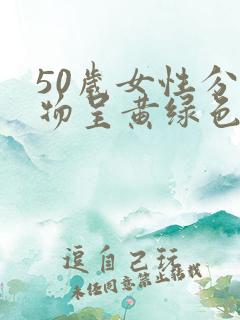 50歲女性分
物呈黄绿色
逗自己玩
未经同意禁止转载